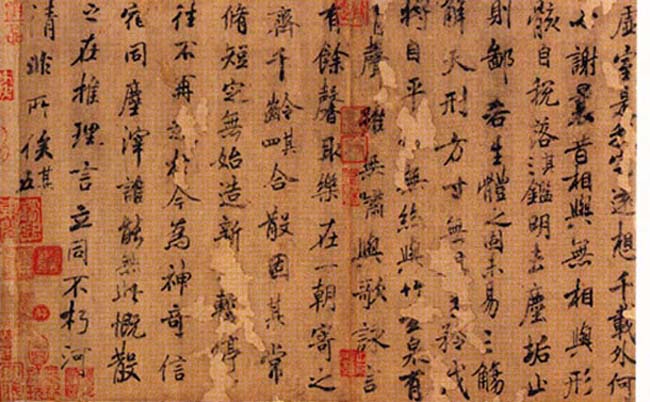 虛室是我宅遠想千載外何
必謝曩昔相與無相與形
骸自脫落其三鑑明去塵垢止
則鄙吝生體之固未易三觴
解天刑方寸無矜伐
將自平無絲與竹玄泉有
清聲雖無嘯與歌詠言
有餘馨取樂在一朝寄之
齊千齡其四合散固其常
脩短定無始造新暫停
往不再起於今為神奇信
宿同塵滓誰能無此慨散
之在推理言立同不朽河
清非所俟其五